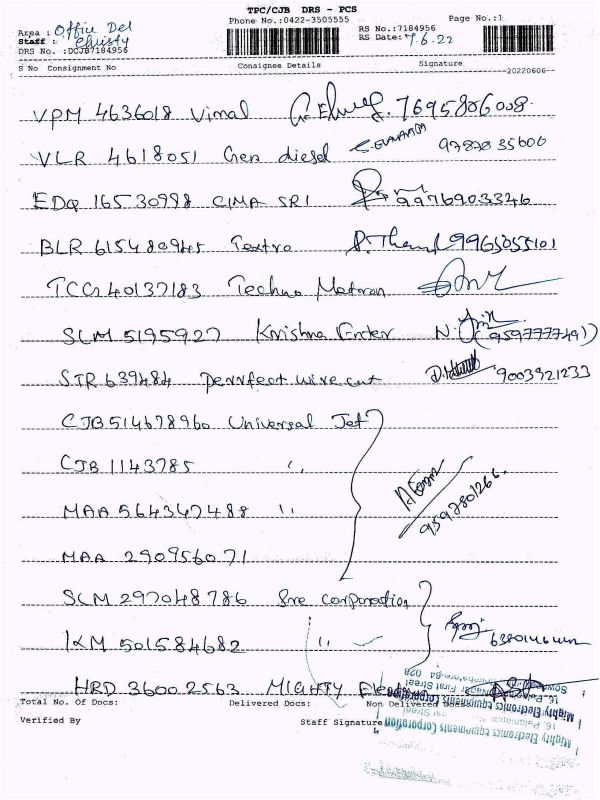 TPC/CJB DRS - PCS
Phone No.:0422-3505555
Page No.:1
Area : Office Del
Staff : Christy
DRS No. :DCJB7184956
RS No.:7184956
RS Date: 7.6.22
S No Consignment No Consignee Details Signature
20220606
VPM 4636018 Vimal 7695806008
VLR 4618051 Gen diesel 97878 35606
EDQ 16530998 CIMA SRI 9976903346
BLR 615480945 Textro 9965055101
TCG 40137183 Techno Metran
SLM 5195927 Krishna Enter N. (9597777491)
STR 639484 Perrfect wire cut 9003921233
CJB 514678960 Universal Jet
CJB 1143785 "
MAA 564347488 "
9597801266.
MAA 290956071
SLM 297048786 Sree Corporation
IKM 501584682 "
HRD 36002563 MIGHTY Elec
Total No. Of Docs: Delivered Docs: Non Delivered Docs:
Verified By Staff Signature
Mighty Electronics Equipments Corporation
Mighty Electronics Equipments Corporation